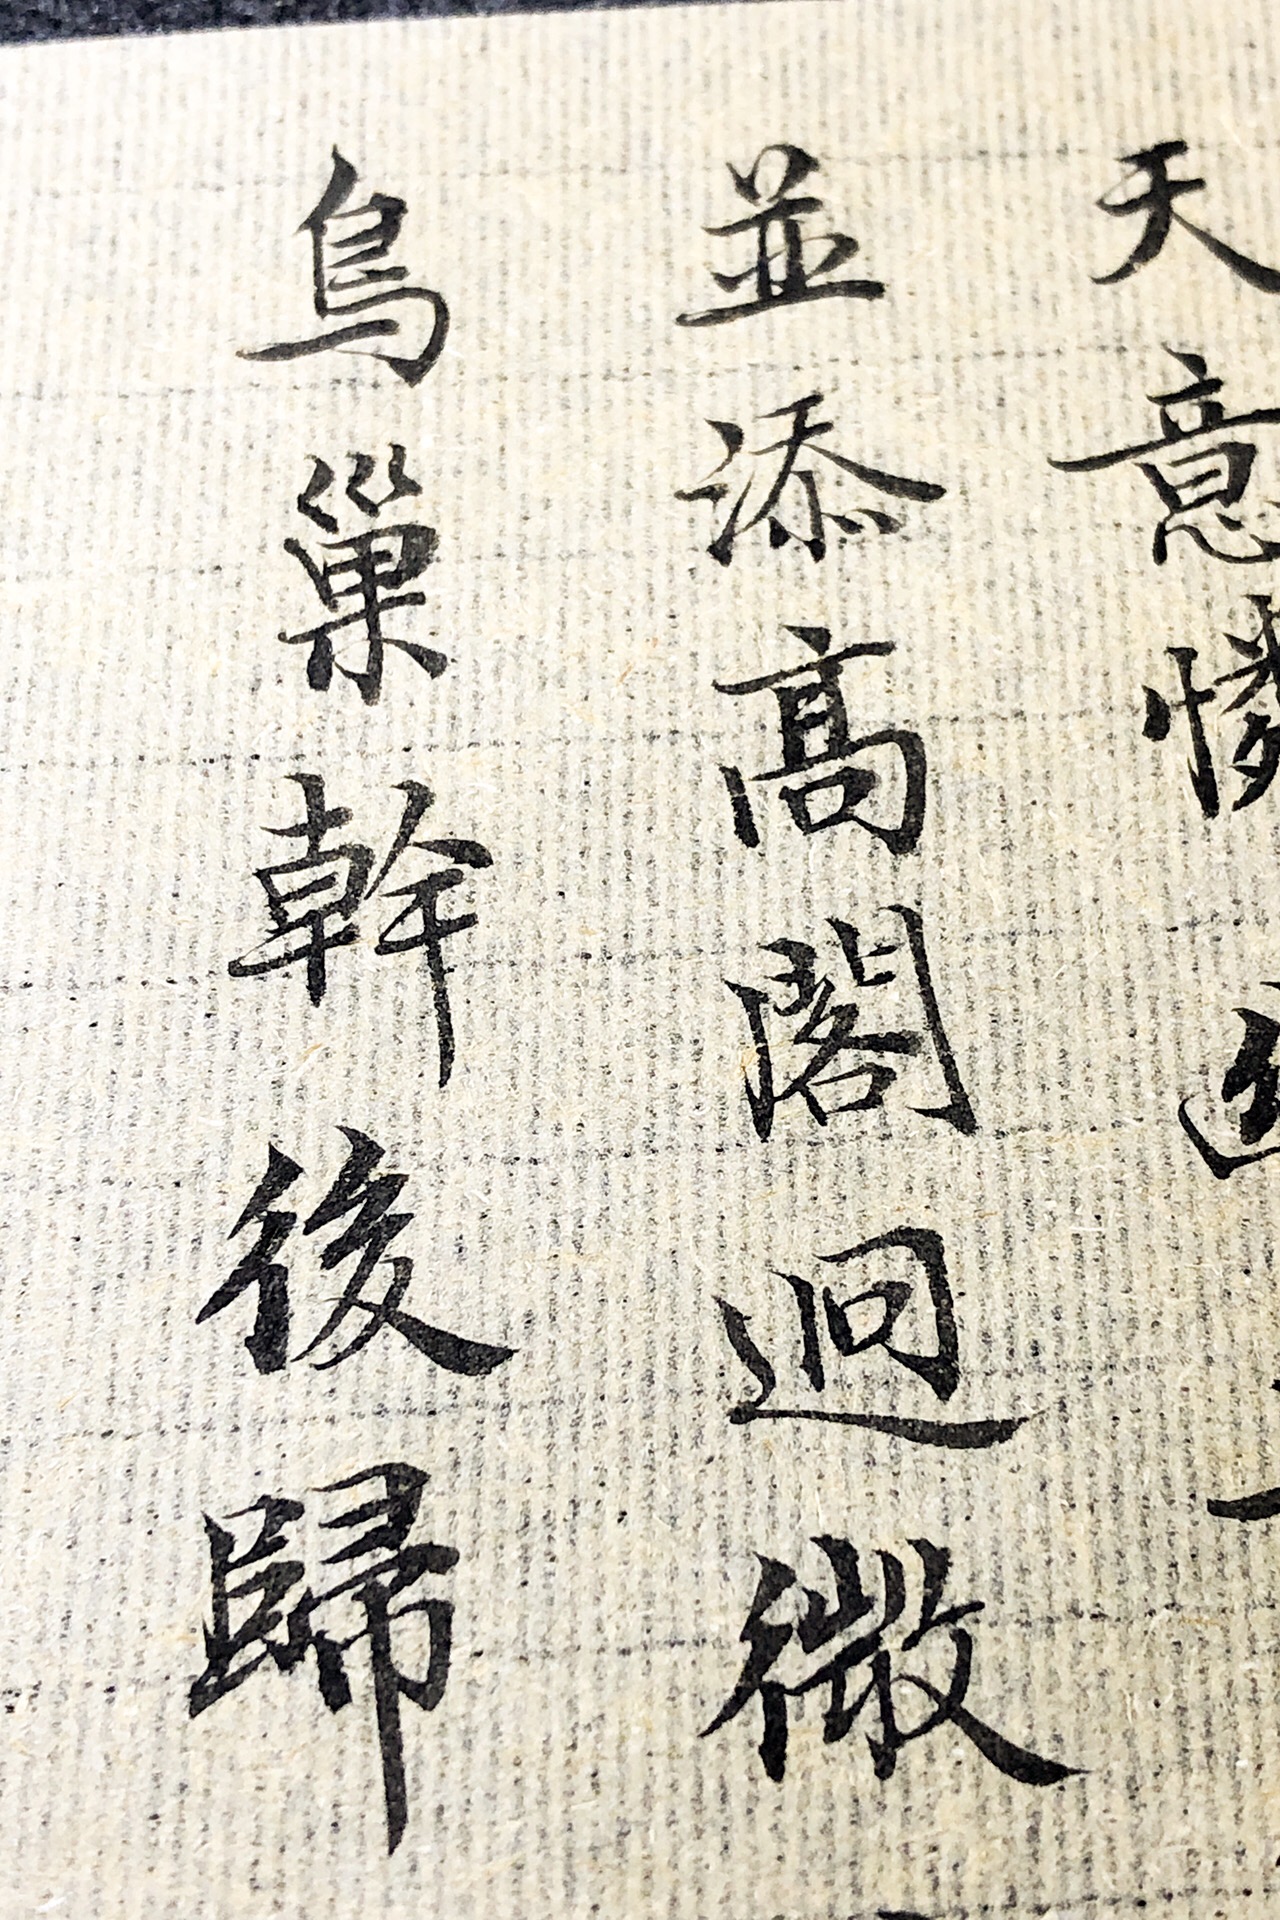 天意憐
並添高閣迥微
鳥巢幹後歸